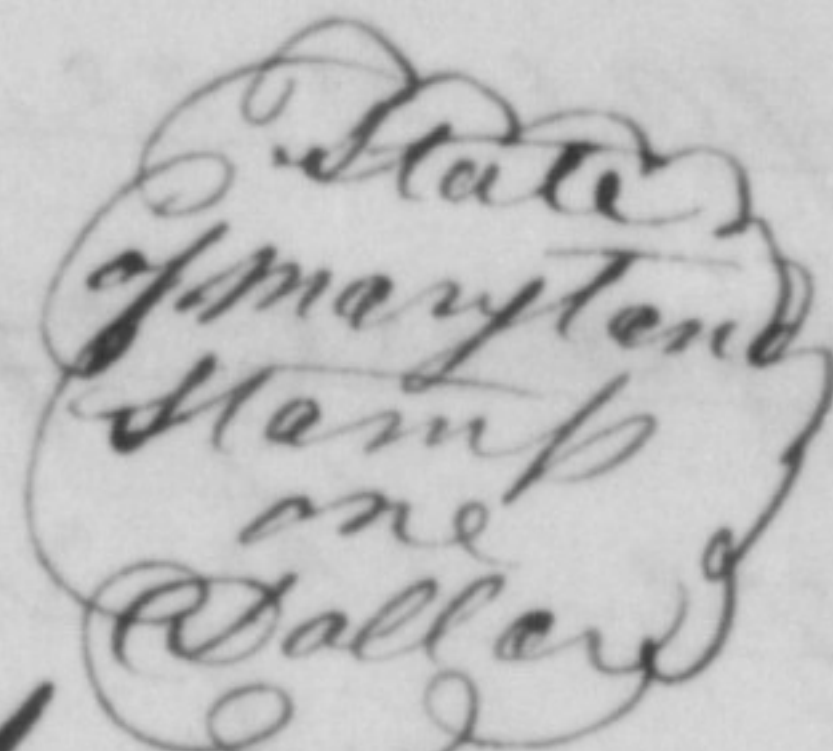 State
of Maryland
Stamp
one
Dollar